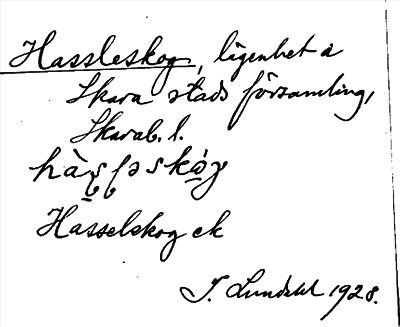 Hassleskog, lägenhet å
Skara stads församling,
Skarab. l.
Hasselskog ek
J. Lundahl 1928.